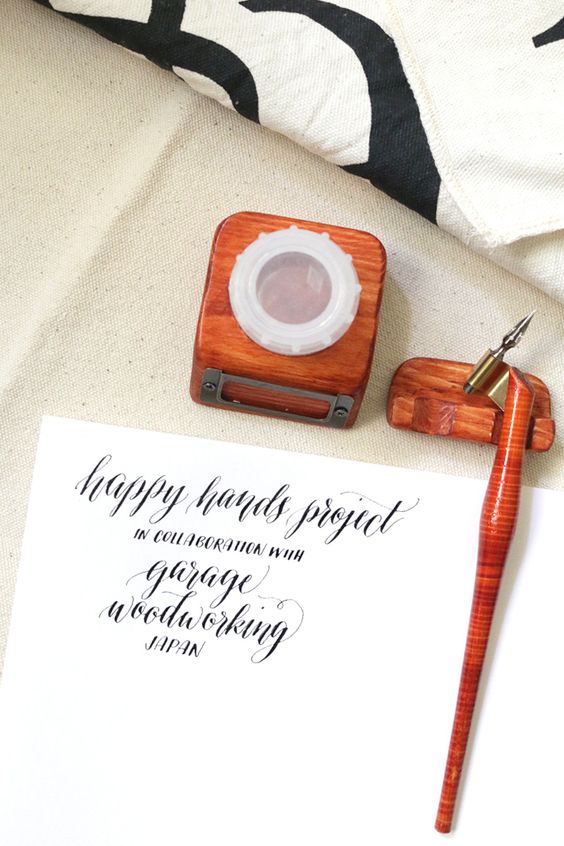 happy hands project
IN COLLABORATION WITH
garage
woodworking
JAPAN